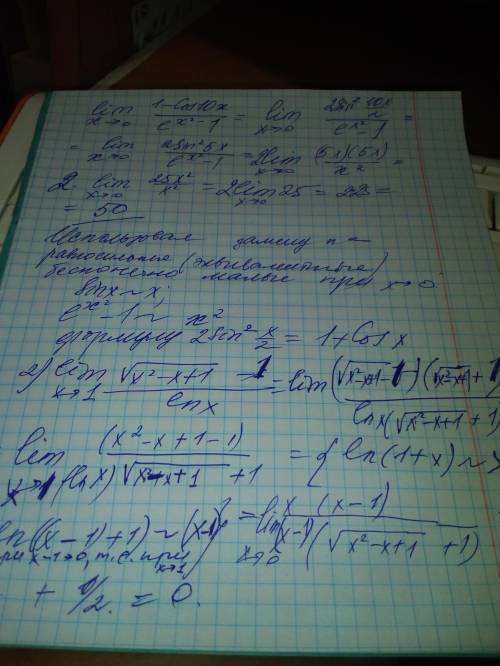 lim x→0 (1-Cos10x)/(e^(x²)-1) = lim x→0 (2Sin² 10x/2)/(e^(x²)-1) =
= lim x→0 (2Sin²5x)/(e^(x²)-1) = 2lim x→0 ((5x)(5x))/x² =
2 · lim x→0 25x²/x² = 2lim x→0 25 =
= 50
Использовал замену на
равносильные (эквивалентные)
бесконечно малые при x→0
Sinx ~ x;
e^(x²)-1 ~ x²
формулу 2Sin² x/2 = 1+Cos x
2) lim x→1 (√(x²-x+1) - 1)/(lnx) = lim ((√(x²-x+1) - 1)(√(x²-x+1) + 1))/(lnx(√(x²-x+1) + 1))
lim x→1 (x²-x+1-1)/((lnx)√(x²-x+1) + 1) = { ln(1+x) ~
ln((x-1)+1) ~ (x-1) } = lim x→0 (x(x-1))/((x-1)(√(x²-x+1) + 1))
при x-1→0, т.е. при x→1
= 0.